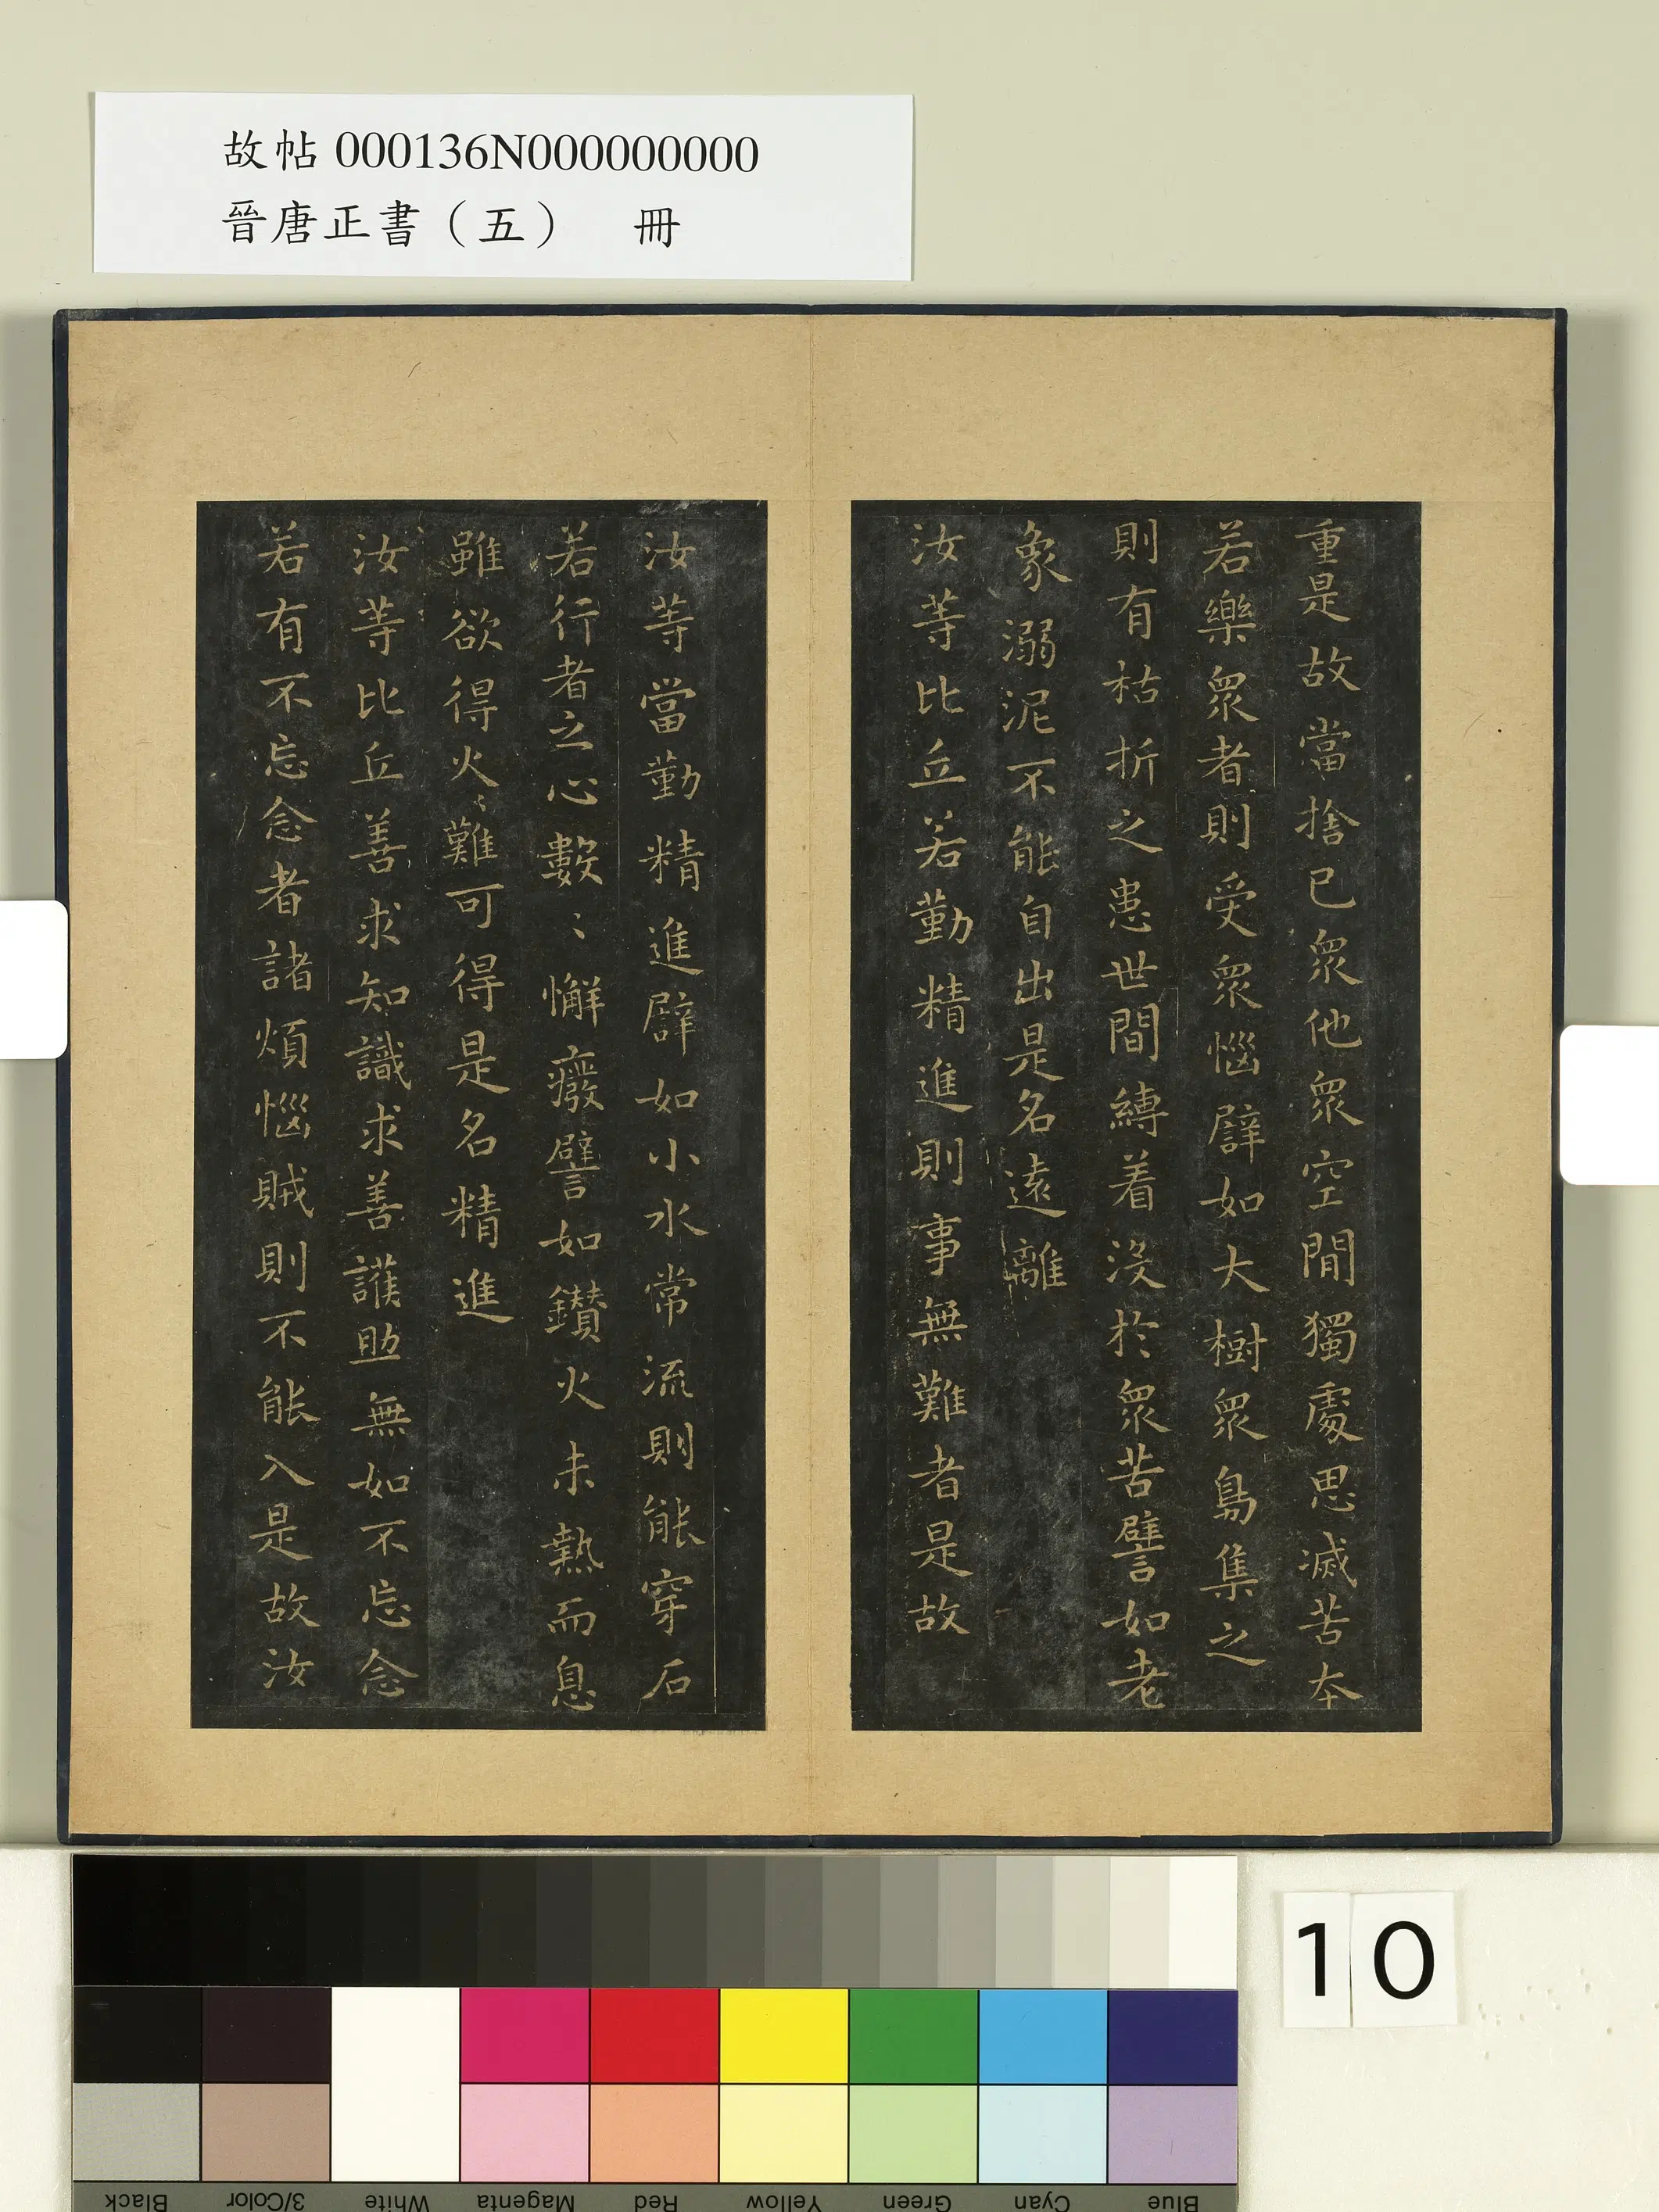 故帖 000136N000000000
晉唐正書（五） 冊
重是故當捨已衆他衆空閒獨處思滅苦本
若樂衆者則受衆惱譬如大樹衆鳥集之
則有枯折之患世間縛着没於衆苦譬如老
象溺泥不能自出是名遠離
汝等比丘若勤精進則事無難者是故
汝等當勤精進譬如小水常流則能穿石
若行者之心數〻懈癈譬如鑽火未熱而息
雖欲得火〻難可得是名精進
汝等比丘善求知識求善護助無如不忘念
若有不忘念者諸煩惱賊則不能入是故汝
10
Black
3/Color
White
Magenta
Red
Yellow
Green
Cyan
Blue